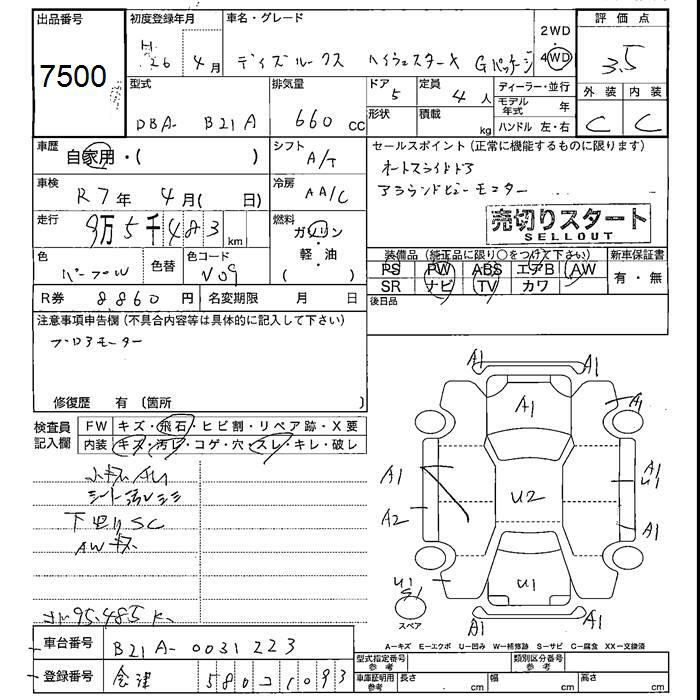 出品番号
7500
初度登録年月
H26 4月
車名・グレード
デイズルークス ハイウェスターX Gパッケージ
2WD
4WD
評価点
3.5
外装 内装
C C
型式
DBA- B21A
排気量
660 cc
ドア
5
形状
定員
4人
積載
kg
ディーラー・並行
モデル年式 年
ハンドル 左・右
車歴
自家用・( )
シフト
A/T
車検
R7年 4月( 日)
冷房
AA/C
走行
9万5千483 km
燃料
ガソリン
軽・油
( )
色
パープルW
色替
色コード
セールスポイント(正常に機能するものに限ります)
オートスライドドア
アラウンドビューモニター
売切りスタート
SELLOUT
装備品(純正品に限り○をつけて下さい)
PS PW ABS エアB AW
SR ナビ TV カワ
新車保証書
有・無
後日品
R券 8860 円
名変期限 月 日
注意事項申告欄(不具合内容等は具体的に記入して下さい)
ブロアモーター
修復歴 有(箇所 )
検査員記入欄
FW キズ・飛石・ヒビ割・リペア跡・X要
内装 キズ・汚レ・コゲ・穴・スレ・キレ・破レ
小キズAU
下廻りSC
AWキズ
95,485K
A1 A1
A1
A1
A1
A2
U2
A1
U1
A1
U1
S1
U1
A1 A1
スペア
A-キズ E-エクボ U-凹み W-補修跡 S-サビ C-腐食 XX-交換済
車台番号
B21A-0031223
登録番号
会津 580 こ 1093
型式指定番号
参考
類別区分番号
参考
車庫証明用
参考
長さ cm
幅 cm
高さ cm